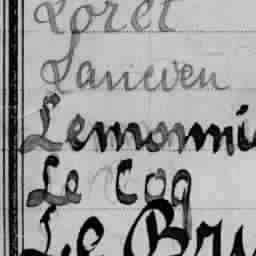 Loret
Laneven
Lemonni
Le Coq
Le Bru